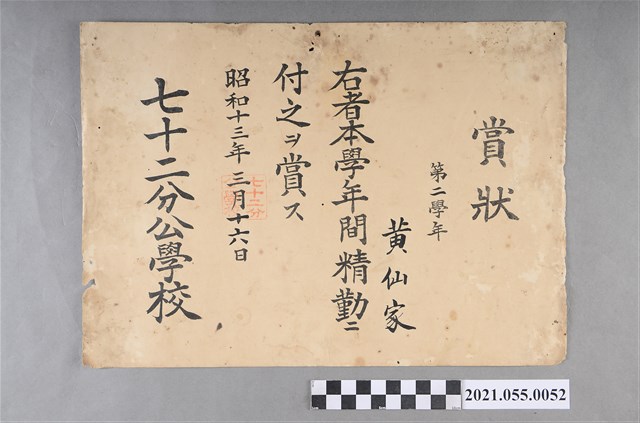 賞狀
第二學年
黄仙家
右者本學年間精勤ニ
付之ヲ賞ス
昭和十三年三月十六日
七十二分公學校
2021.055.0052